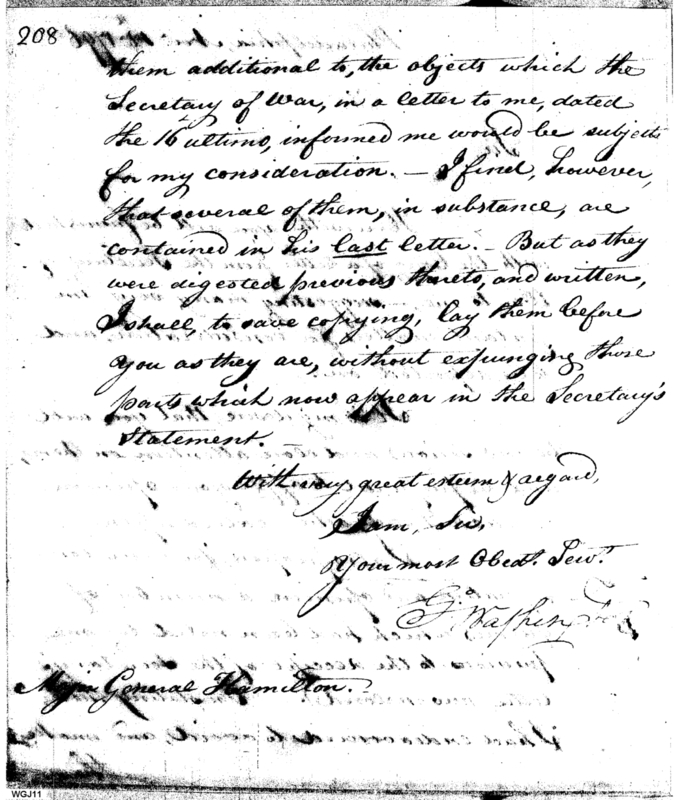 208
them additional to, the objects which the
Secretary of War, in a letter to me, dated
the 16 ultimo, informed me would be subjects
for my consideration. — I find, however,
that several of them, in substance, are
contained in his last letter. — But as they
were digested previous thereto, and written,
I shall, to save copying, lay them before
you as they are, without expunging those
parts which now appear in the Secretary's
Statement. —
With very great esteem & regard,
I am, Sir,
Your most Obedt. Servt.
G. Washington
Major General Hamilton. —
WGJ11